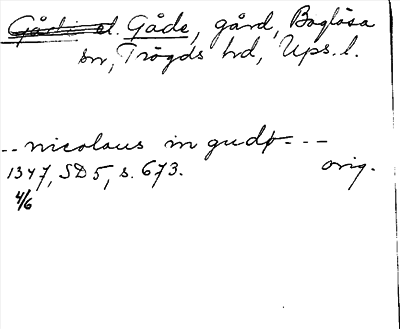 Gåde, gård, Boglösa
sn, Trögds hd, Ups. l.
-- nicolaus in gudø ---
1347, SD 5, s. 673. orig.
4/6